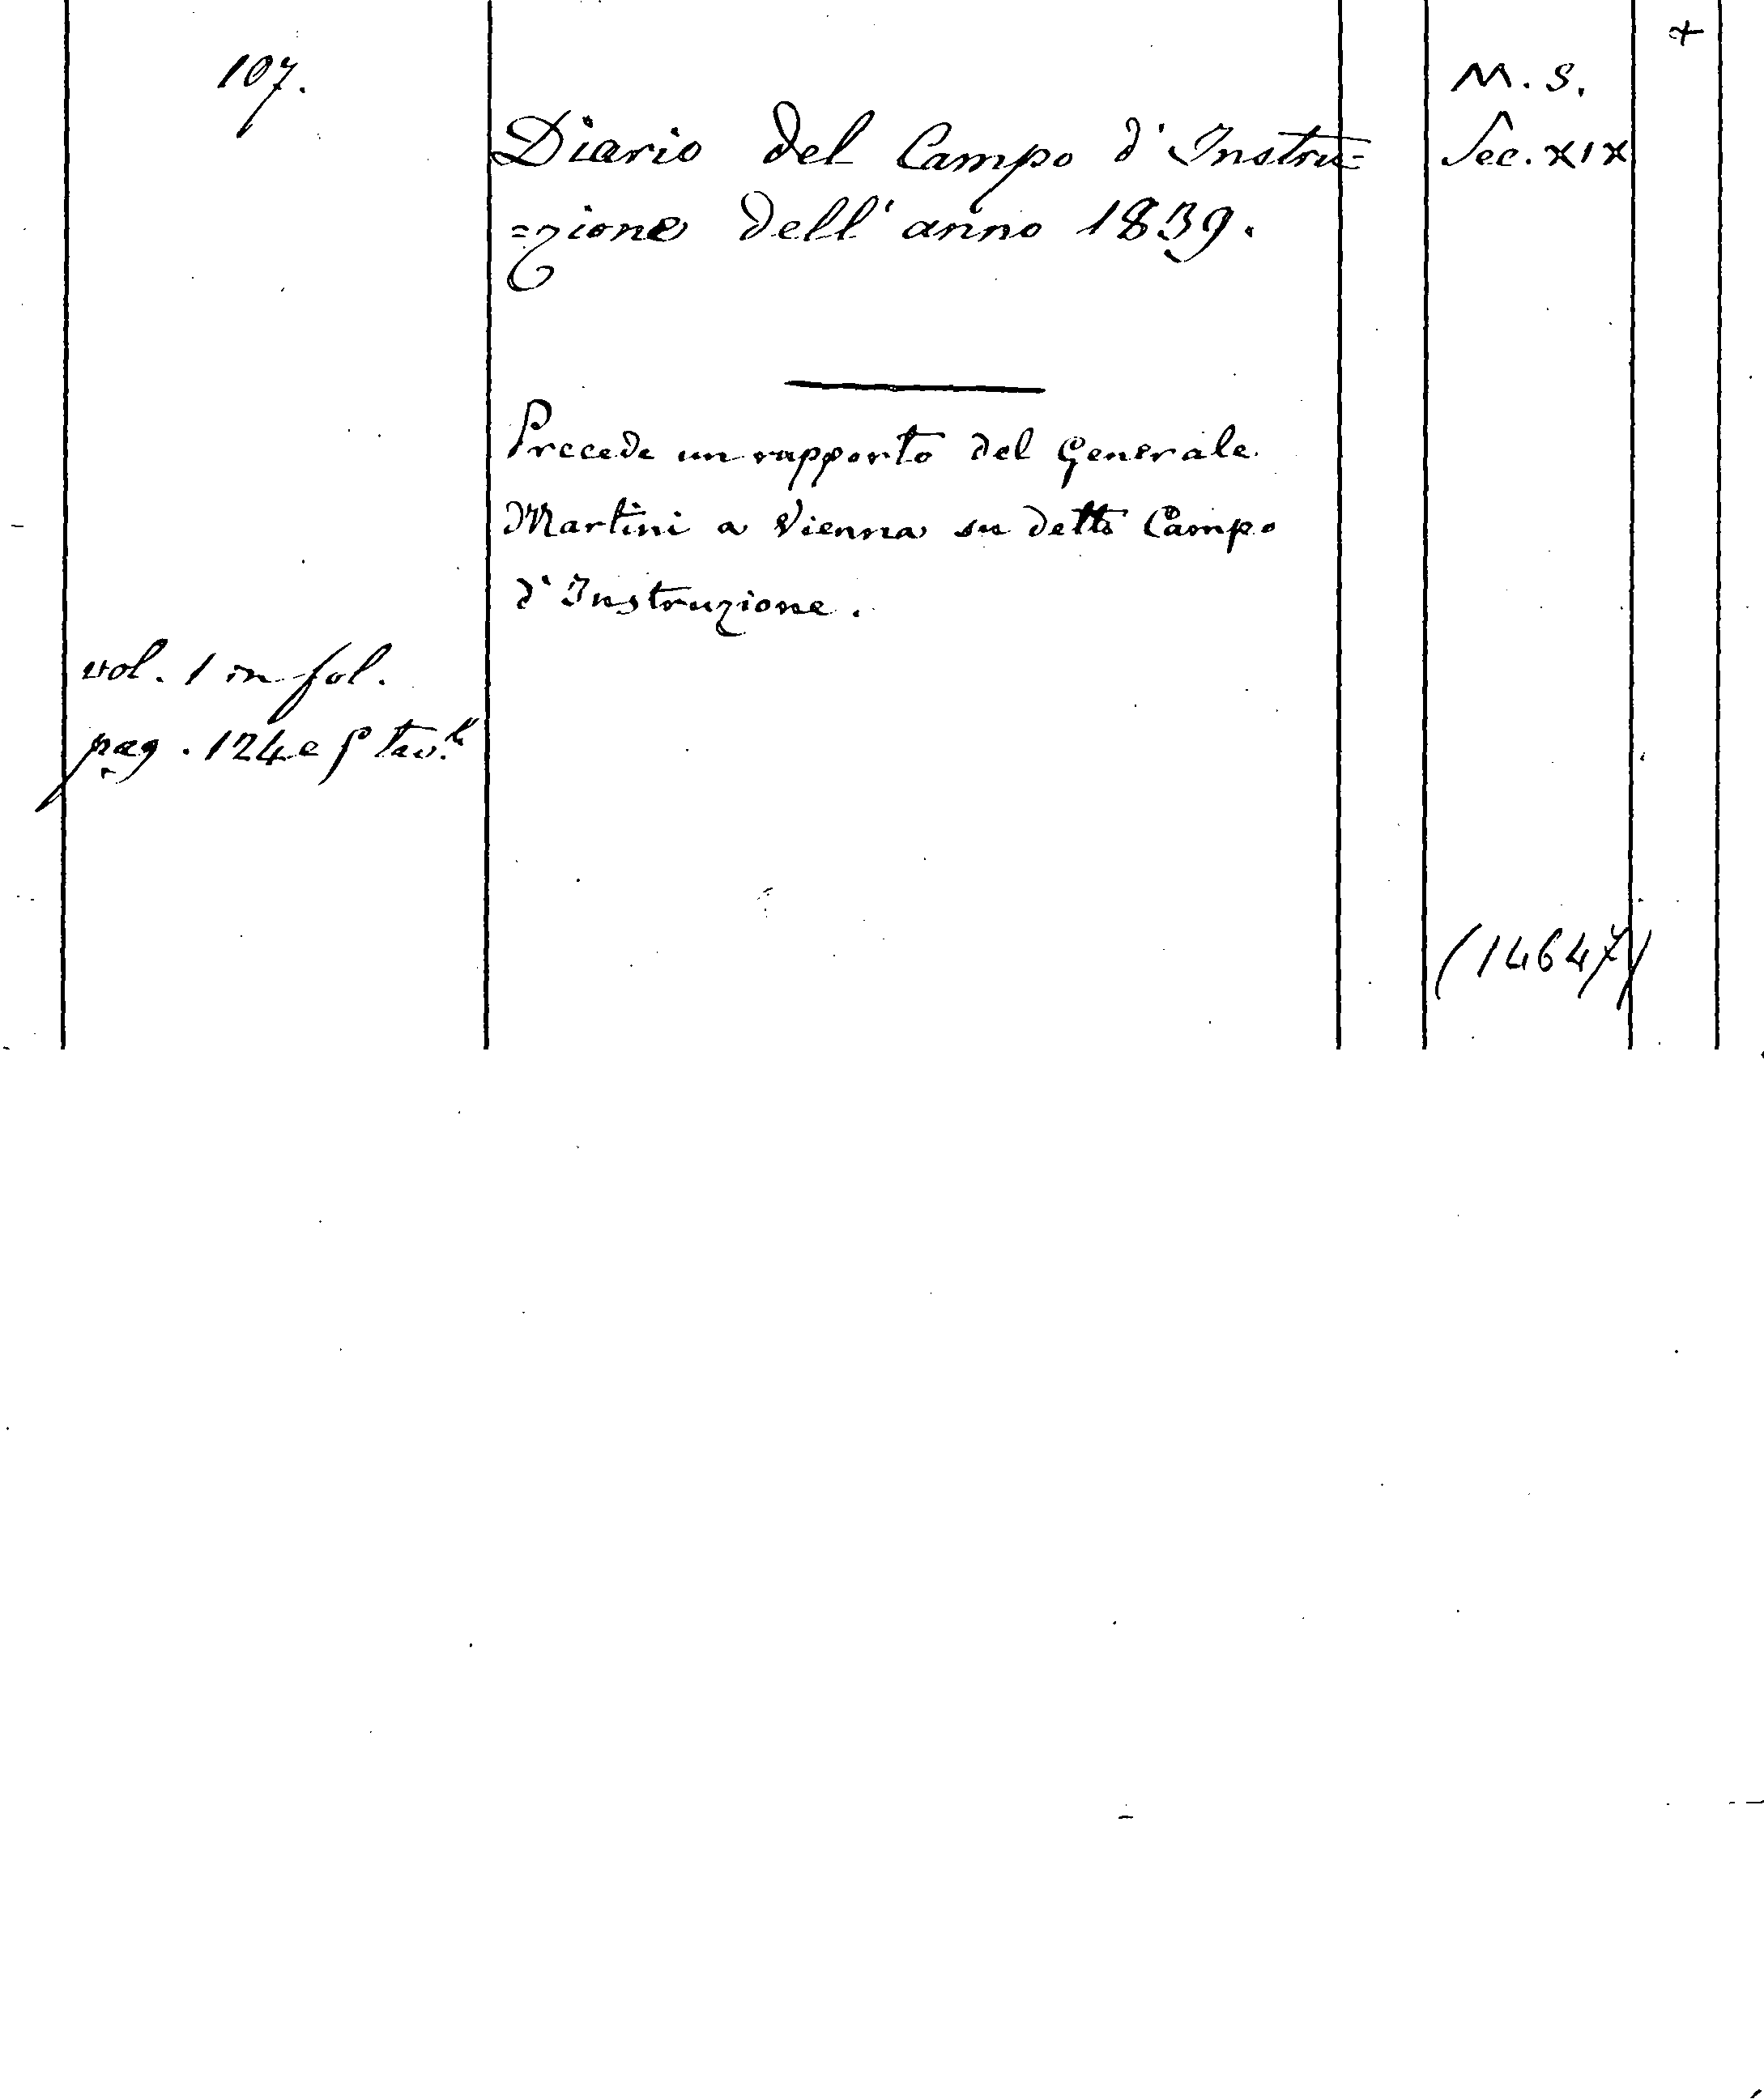 107.
Diario del Campo d'Instru=
=zione dell'anno 1839.
M. S.
Sec. XIX
Precede un rapporto del Generale
Martini a Vienna su detto Campo
d'Instruzione.
vol. 1 in fol.
pag. 124 e tav.
(14647)